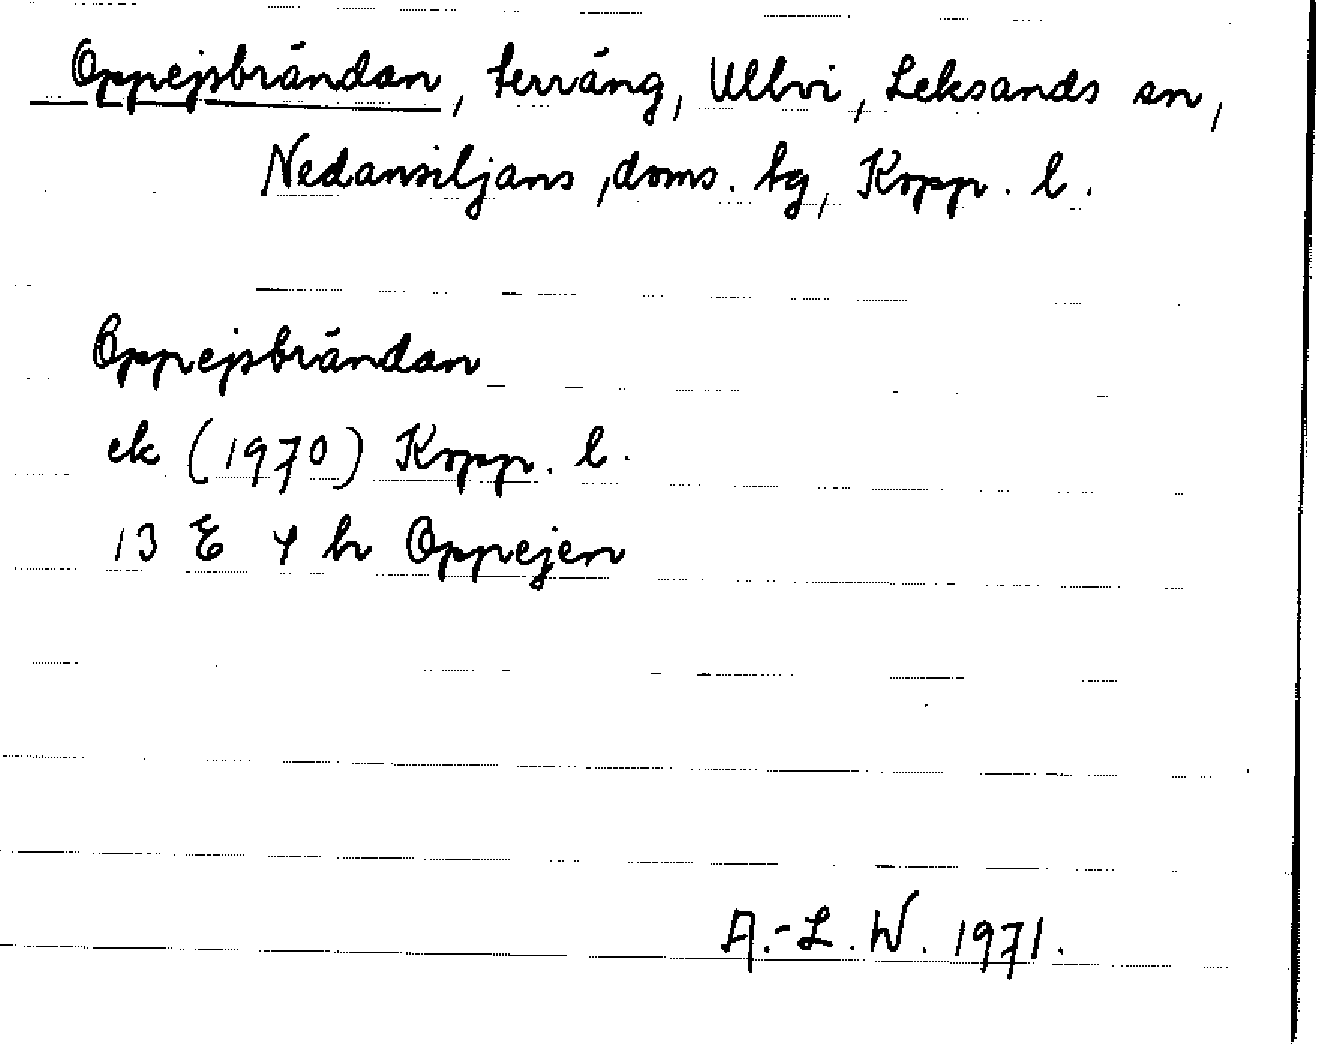 Oppejsbrändan, terräng, Ullvi, Leksands sn,
Nedansiljans doms. tg, Kopp. l.
Oppejsbrändan
ek (1970) Kopp. l.
13 E 4 h Oppejen
A.-L. W. 1971.